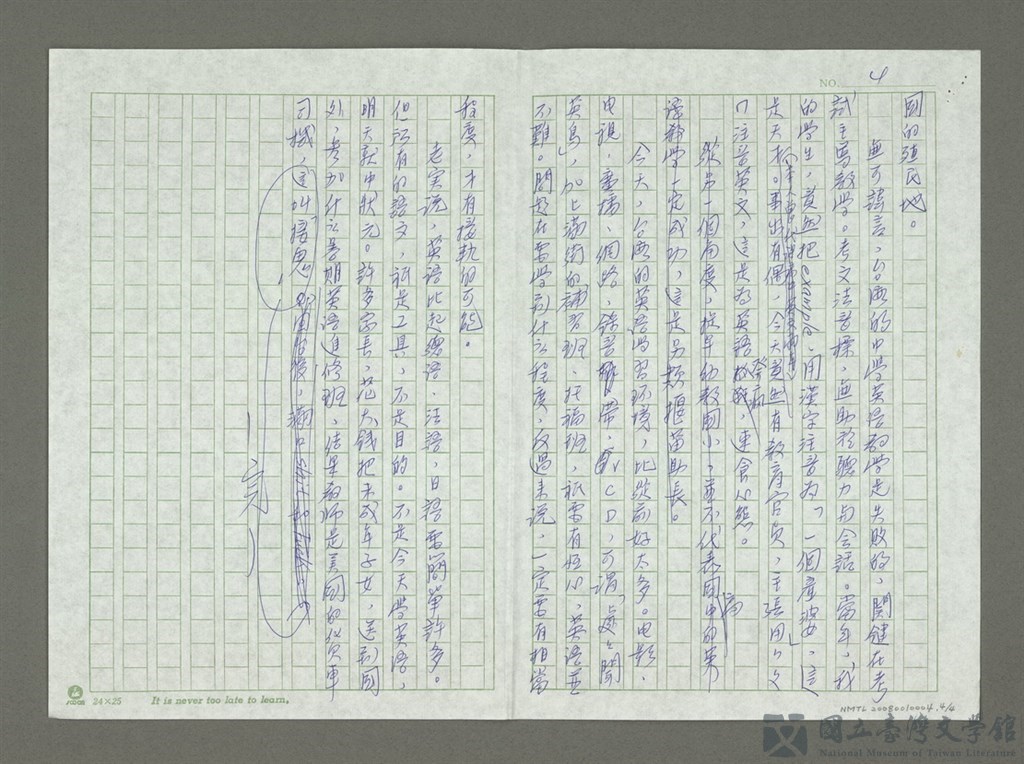 NO. 4
國的殖民地。
無可諱言，台灣的中學英語教學是失敗的，關鍵在考
試主導教學。考文法音標，無助於聽力與会話。當年，我
的學生，竟然把example，用漢字注音為「一個產婆」，這
是天才。事出有偶，今天竟然有教育官員，主張用ㄅㄆ
ㄇ注音英文，這是為英語發病，速食心態。
從另一個角度，提早幼教國小，並不代表國中的英
語教學一定成功，這是另類揠苗助長。
今天，台灣的英語學習環境，比從前好太多。电影、
电視、廣播、網路、錄音帶、CD，可謂「處處聞
英鳥」，加上滿街的補習班、托福班，祇要有恆心，英語並
不難。問題在要學到什么程度，反過來説，一定要有相當
程度，才有接軌的可能。
老実説，英語比起德語、法語、日語要簡單許多。
但所有的語文，祇是工具，不是目的。不是今天學英語，
明天就中狀元。許多家長，花大錢把未成年子女，送到國
外，參加什么暑期英語進修班，結果教師是美國的貨車
司機，這叫「接鬼」。
—完—
24×25
It is never too late to learn.
NMTL 20080010004.4/4
國立臺灣文學館
National Museum of Taiwan Literature